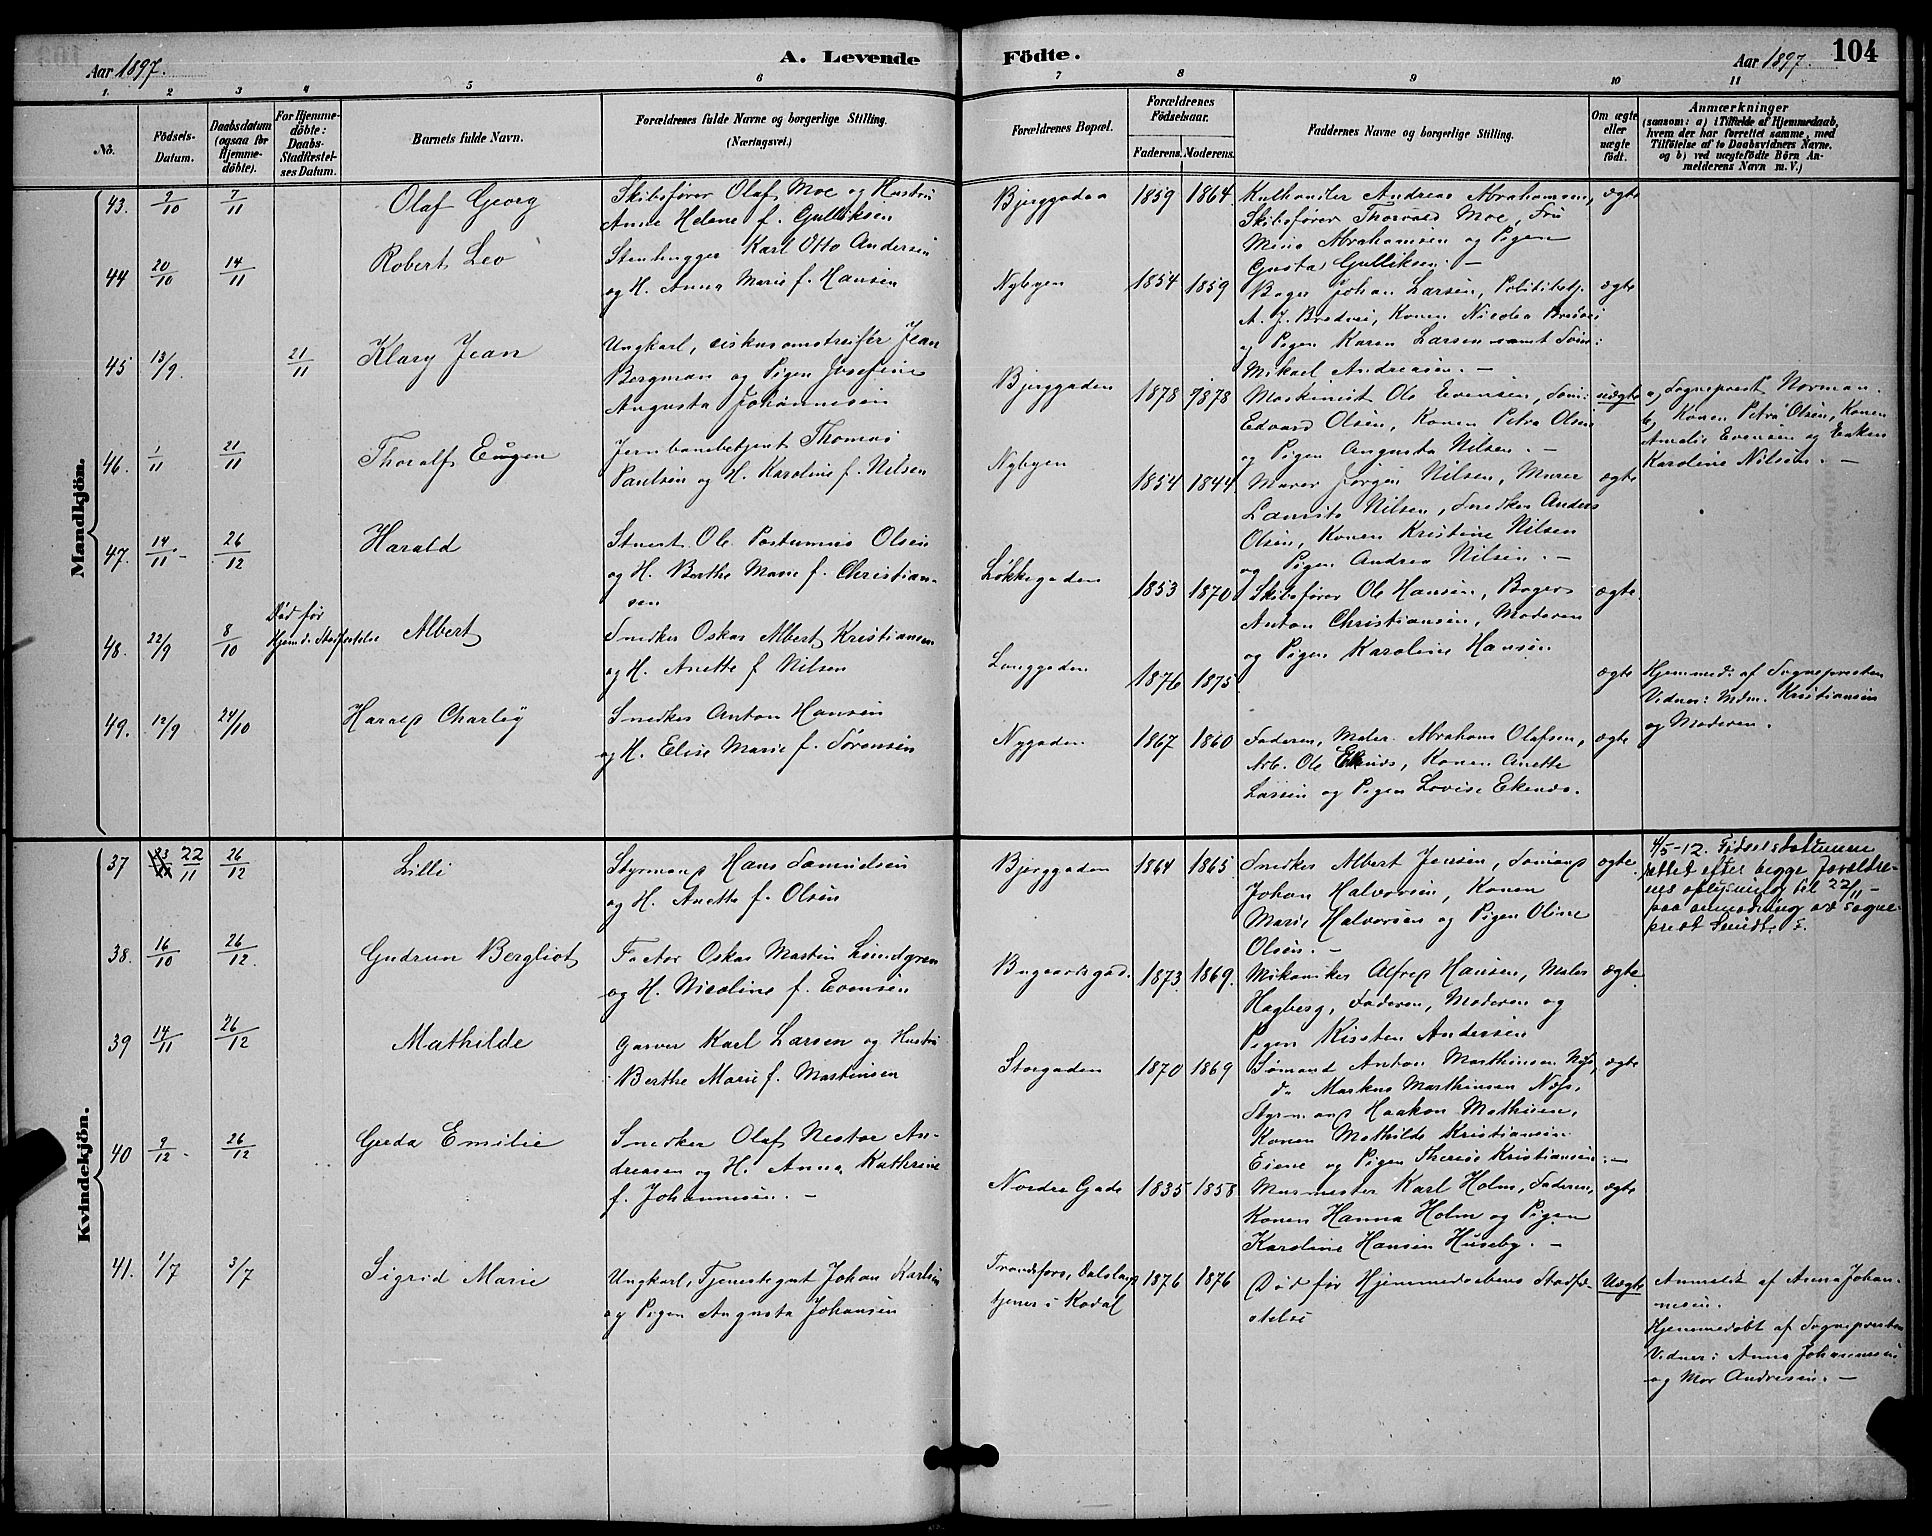 Aar 1897.
A. Levende
Födte.
Aar 1897.
104
1. 2 3 4 5 6 7 8 9 10 11
No.
Födsels-
Datum.
Daabsdatum
(ogsaa for
Hjemme-
döbte).
For Hjemme-
döbte:
Daabs-
Stadfæstel-
ses Datum.
Barnets fulde Navn.
Forældrenes fulde Navne og borgerlige Stilling.
(Næringsvei.)
Forældrenes Bopæl.
Forældrenes
Födselsaar.
Faderens. Moderens.
Faddernes Navne og borgerlige Stilling.
Om ægte
eller
uægte
födt.
Anmærkninger
(saasom: a) i Tilfælde af Hjemmedaab,
hvem der har forrettet samme, med
Tilföielse af to Daabsvidners Navne.
og b) ved uægtefödte Börn An-
melderens Navn m. V.)
Mandkjön.
43. 9/10 7/11 Olaf Georg
Skibsfører Olaf Moe og Hustru
Anne Helene f. Gulliksen
Bjerggaden 1859 1864
Kulhandler Andreas Abrahamsen,
Skibsfører Thorvald Moe, Fru
Mina Abrahamsen og Pigen
Gusta Gulliksen. -
ægte
44 20/10 14/11 Robert Leo
Stenhugger Karl Otto Andersen
og H. Anna Marie f. Hansen
Nybyen 1854 1859
Bager Johan Larsen, Politibetj.
A. J. Bredvei, Konen Nicolea Bredvei
og Pigen Karen Larsen samt Söm:
Mikael Andreasen. -
ægte
45 13/9 21/11 Klary Jean
Ungkarl, cirkusomstreifer Jean
Bergman og Pigen Josefine
Augusta Johannesen
Bjerggaden 1878 1878
Maskinist Ole Evensen, Söm:
Edvard Olsen, Konen Petra Olsen
og Pigen Augusta Nilsen. -
uægte
a, Sogneprest Norman.
b, Konen Petra Olsen, Konen
Amalie Evensen og Enken
Karoline Nilsen. -
46. 1/11 21/11 Thoralf Eugen
Jernbanebetjent Thomas
Paulsen og H. Karoline f. Nilsen
Nybyen 1854 1844
Murer Jörgen Nilsen, Murer
Laurits Nilsen, Snedker Anders
Olsen, Konen Kristine Nilsen
og Pigen Andrea Nilsen. -
ægte
47. 14/11 - 26/12 Harald
Stuert Ole Postumus Olsen
og H. Berthe Marie f. Christian-
sen
Løkkegaden 1853 1870
Skibsfører Ole Hansen, Bager
Anton Christiansen, Moderen
og Pigen Karoline Hansen
ægte.
48. 22/9 8/10 Död før
Hjemd. Stadfæstelse Albert
Snedker Oskar Albert Kristiansen
og H. Anette f Nilsen
Langgaden 1876 1875
ægte
Hjemmed: af Sognepresten
Vidner: Mdm. Kristiansen
og Moderen.
49. 12/9 24/10 Harald Charley
Snedker Anton Hansen
og H. Elise Marie f. Sørensen
Nygaden 1867 1860
Faderen, Maler Abraham Olafsen,
Arb. Ole Ekenes, Konen Anette
Larsen og Pigen Lovise Ekenes.
ægte
Kvindekjön.
37 22/11 26/12 Lilli
Styrmand Hans Samuelsen
og H. Anette f. Olsen
Bjerggaden 1864 1865
Snedker Albert Jensen, Sömand
Johan Halvorsen, Konen
Marie Halvorsen og Pigen Oline
Olsen. -
ægte.
4/5-12. Födselsdatumene
rettet efter begge foreldre-
nes oplysning til 22/11 -
paa anmodning av sogne-
prest
38. 16/10 26/12. Gudrun Bergliot
Factor Oskar Martin Lundgren
og H. Nicoline f. Evensen
Bugaardsgad. 1873 1869.
Mekaniker Alfred Hansen, Maler
Hagberg, Faderen, Moderen og
Pigen Kirsten Andersen
ægte
39 14/11 26/12 Mathilde
Garver Karl Larsen og Hustru
Berthe Marie f. Martinsen
Storgaden 1870 1869
Sømand Anton Marthinsen Næs,
do Markus Marthinsen Næs,
Styrmand Haakon Mathisen,
Konen Mathilde Kristiansen
Eiene og Pigen Therese Kristiansen. -
ægte
40 9/12 - 26/12 Gerda Emilie
Snedker Olaf Nestor An-
dreasen og H. Anna Kathrine
f. Johannesen. -
Nordre Gade 1835 1858
Murmester Karl Holm, Faderen,
Konen Hanna Holm og Pigen
Karoline Hansen Huseby. -
ægte
41. 1/7 3/7 Sigrid Marie
Ungkarl, Tjenestegut Johan Karlsen
og Pigen Augusta Johansen
i Kodal 1876 1876
Död før Hjemmedaabens Stadfæ-
stelse
Uægte
Anmeldt af Anna Johan-
nesen.
Hjemmedøbt af Sognepresten
Vidner: Anna Johannesen
og Mor Andresen. -